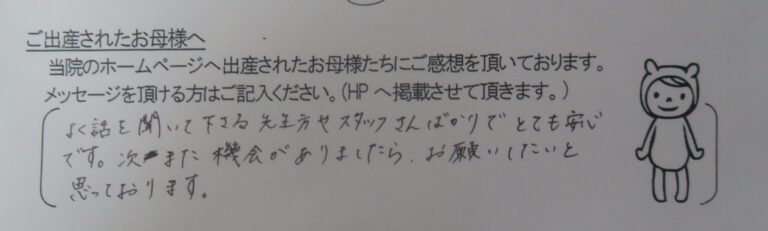 ご出産されたお母様へ
当院のホームページへ出産されたお母様たちにご感想を頂いております。
メッセージを頂ける方はご記入ください。(HPへ掲載させて頂きます。)
よく話を聞いて下さる先生方やスタッフさんばかりでとても安心
です。次また機会がありましたら、お願いしたいと
思っております。